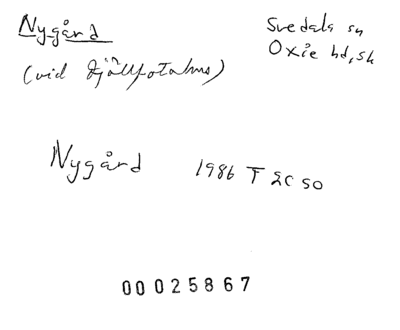 Nygård
Svedala sn
Oxie hd, Sk
(vid
Nygård 1986 T 2C SO
00025867